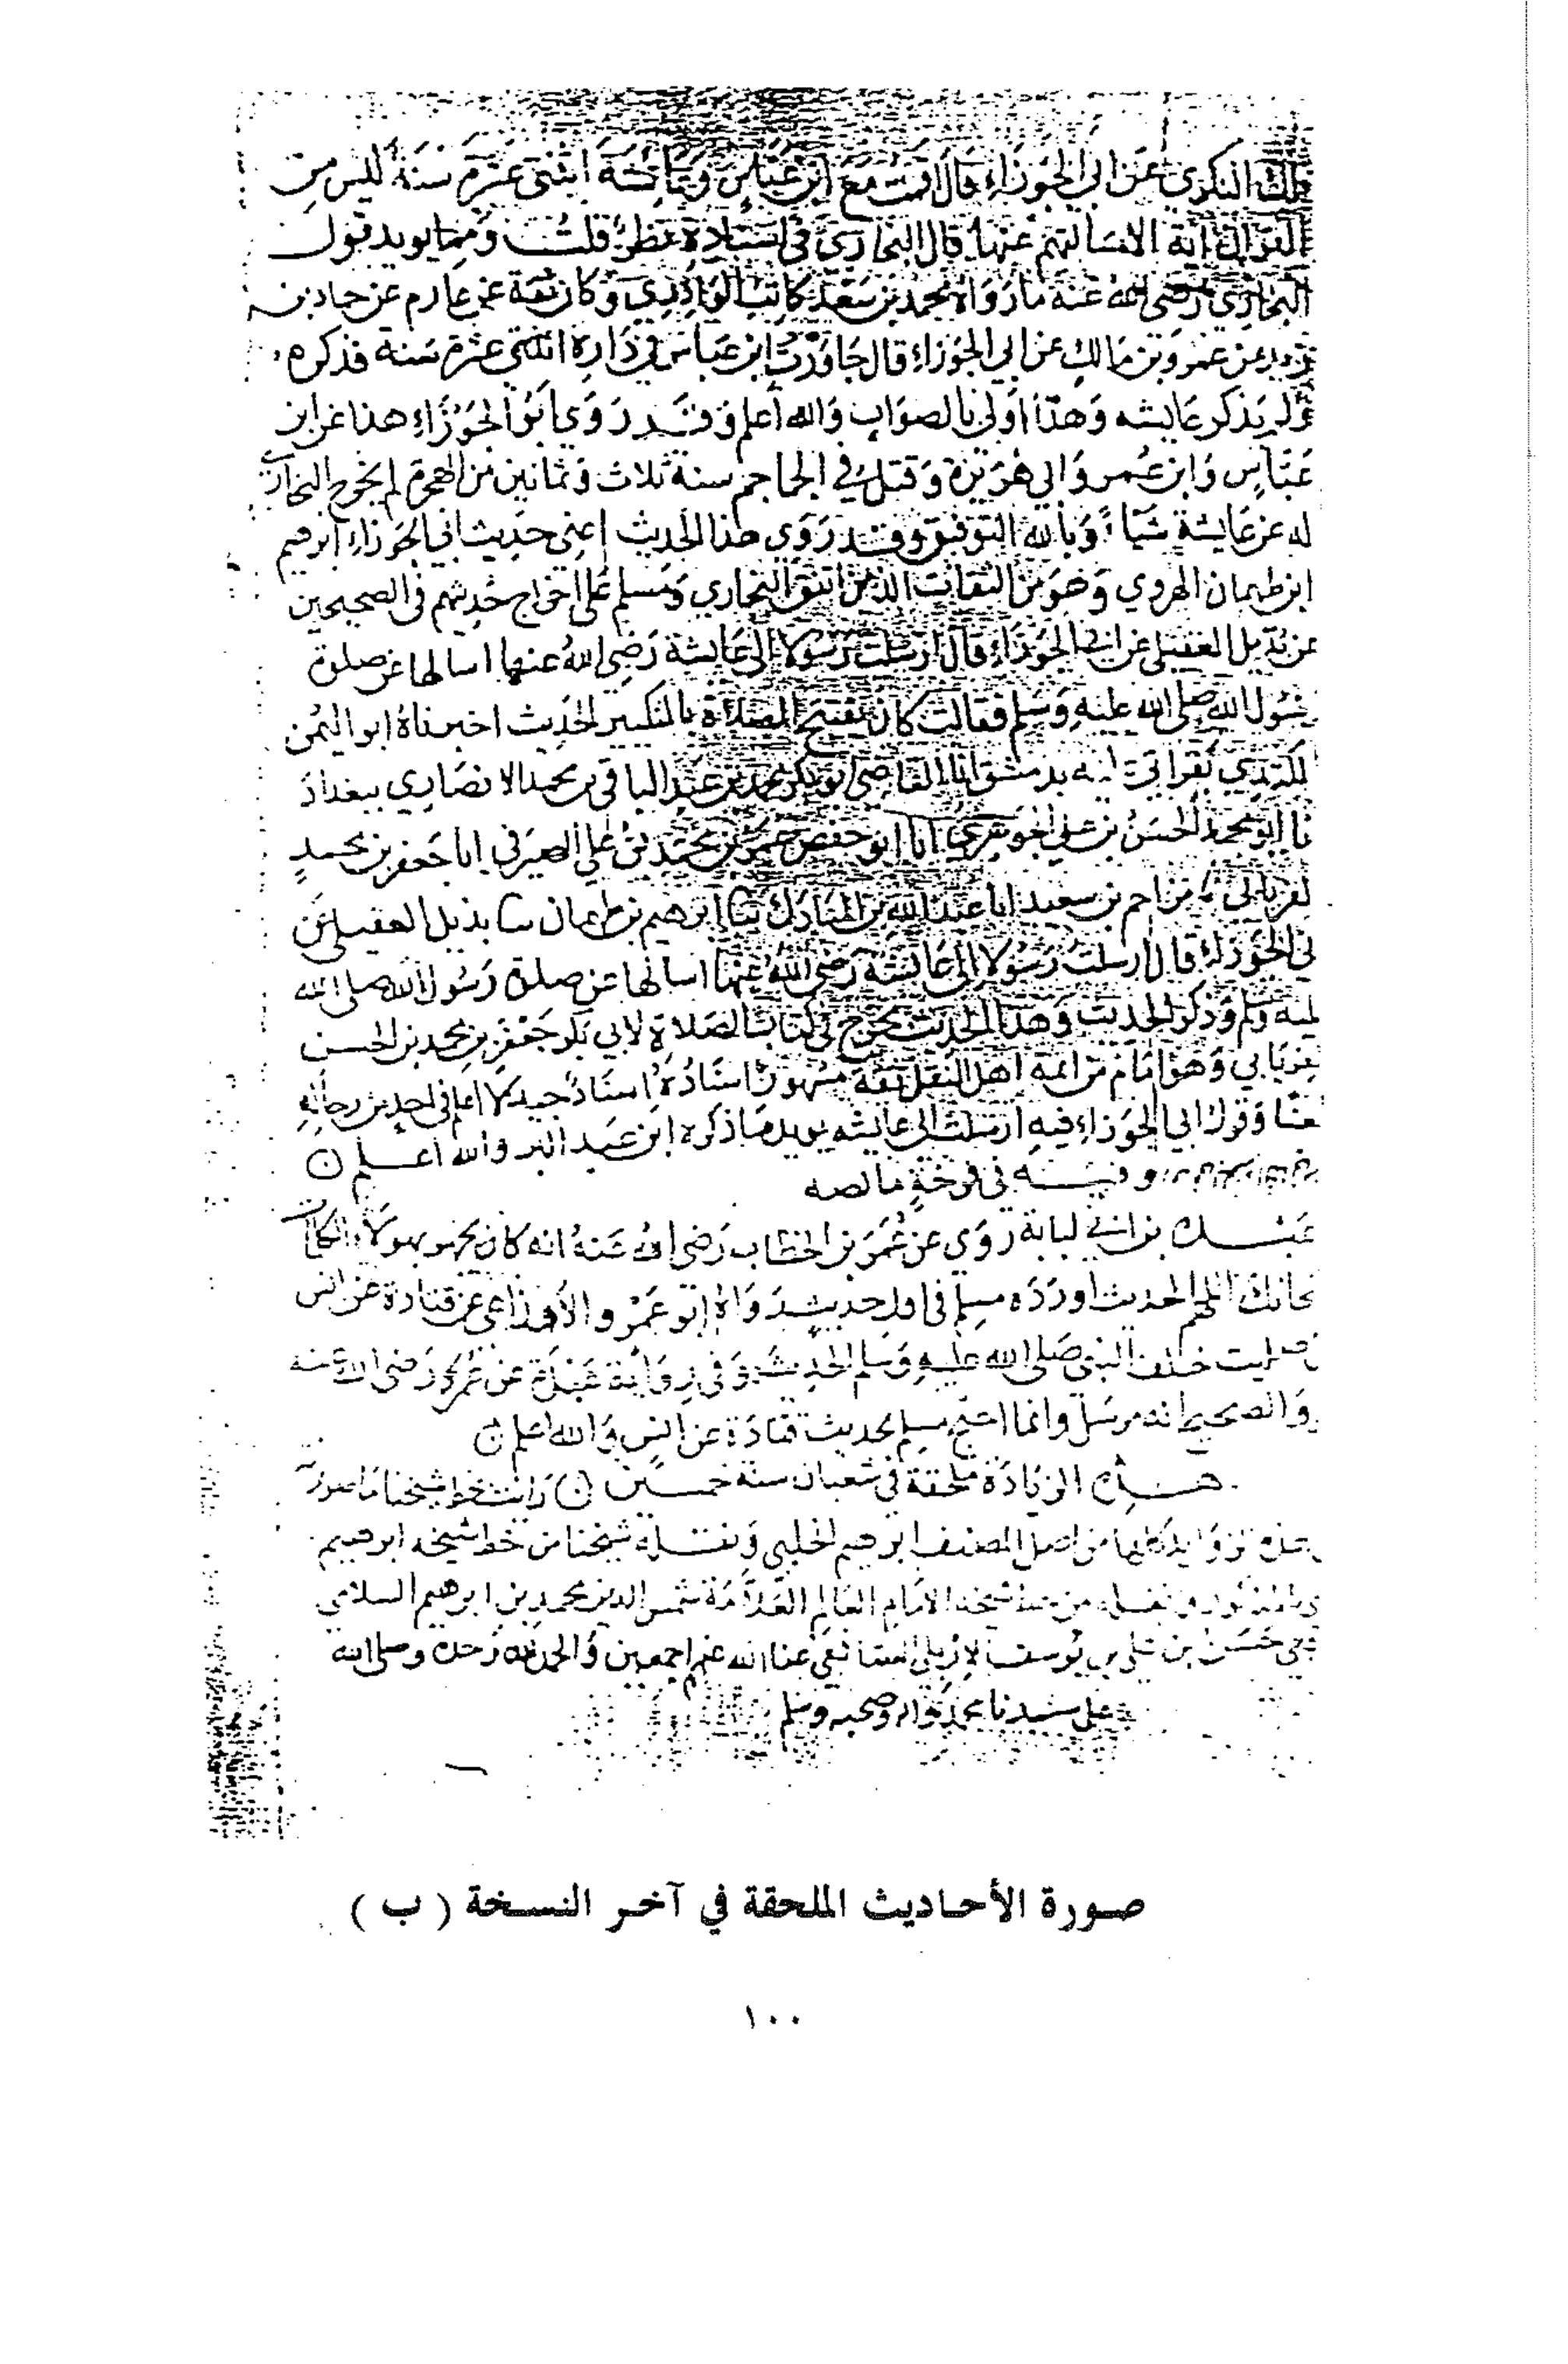 مالك النكري عن ابي الجوزاء قال اقمت مع ابن عباس وعائشة اثنتي عشرة سنة ليس من
القران اية الا سالتهم عنها قال البخاري في اسناده نظر قلت ومما يويد قول
البخاري رضي الله عنه ما رواه محمد بن سعد كاتب الواقدي وكان ثقة عن عارم عن حماد بن
زيد عن عمرو بن مالك عن ابي الجوزاء قال جاورت ابن عباس في داره اثنتي عشرة سنة فذكره
ولم يذكر عايشه وهذا اولى بالصواب والله اعلم وقد روى ابو الجوزاء هذا عن ابن
عباس وابن عمر وابي هريرة وقتل في الجماجم سنة ثلاث وثمانين من الهجرة لم يخرج البخاري
له عن عايشة شيا وبالله التوفيق وقد روى هذا الحديث اعني حديث ابي الجوزاء ابرهيم
ابن طهمان الهروي وهو من الثقات الذين اتفق البخاري ومسلم على اخراج حديثهم في الصحيحين
عن بديل العقيلي عن ابي الجوزاء قال ارسلت رسولا الى عايشة رضي الله عنها اسالها عن صلوة
رسول الله صلى الله عليه وسلم فقالت كان يفتتح الصلاة بالتكبير الحديث اخبرناه ابو اليمن
الكندي بقراتي عليه بدمشق انا القاضي ابو بكر محمد بن عبد الباقي بن محمد الانصاري ببغداد
نا ابو محمد الحسن بن علي الجوهري انا ابو حفص عمر بن محمد بن علي الصيرفي انا جعفر بن محمد
لفريابي نا مزاحم بن سعيد انا عبد الله بن المبارك ثنا ابرهيم بن طهمان ثنا بديل العقيلي عن
بي الجوزاء قال ارسلت رسولا الى عايشة رضي الله عنها اسالها عن صلوة رسول الله صلى الله
ليه وسلم وذكر الحديث وهذا الحديث مخرج في كتاب الصلاة لابي بكر جعفر بن محمد بن الحسن
لفريابي وهو امام من ائمة اهل النقل ثقة مشهور اسناده اسناد جيد لا اعلم في احد من رجاله
طعنا وقول ابي الجوزاء فيه ارسلت الى عايشه يويد ما ذكره ابن عبد البر والله اعلم ن
وفيه في فرخة ما نصه
عبدة بن ابي لبابة روى عن عمر بن الخطاب رضي الله عنه انه كان يجهر بهولاء الكلمات
سبحانك اللهم الحديث اورده مسلم في اول حديث رواه ابو عمرو الاوزاعي عن قتادة عن انس
صليت خلف النبي صلى الله عليه وسلم الحديث وفي رواية عبدة عن عمر رضي الله عنه
والصحيح انه مرسل وانما احتج مسلم بحديث قتادة عن انس والله اعلم ن
هذه الزيادة ملحقة في شعبان سنة خمسين ن رايت بخط شيخنا ما صورته
من اصل المصنف ابرهيم الحلبي ونقله شيخنا من خط شيخه ابرهيم
المذكور ونقله من خط شيخه الامام العالم العلامة شمس الدين محمد بن ابرهيم السلامي
حسن بن علي بن يوسف الاربلي الشافعي عفا الله عنهم اجمعين والحمد لله وحده وصلى الله
على سيدنا محمد واله وصحبه وسلم
صورة الأحاديث الملحقة في آخر النسخة ( ب )
١٠٠